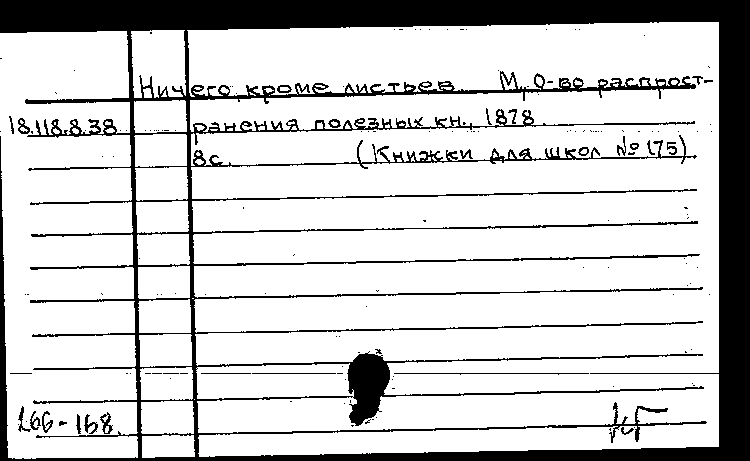 Ничего, кроме листьев. М, О-во распрост-
18.118.8.38 ранения полезных кн., 1878.
8с. (Книжки для школ № 175)
166-168.